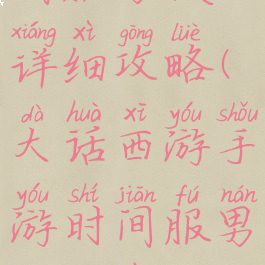 xiáng xì gōng lüè
详细攻略(
dà huà xī yóu shǒu
大话西游手
yóu shí jiān fú nán
游时间服男